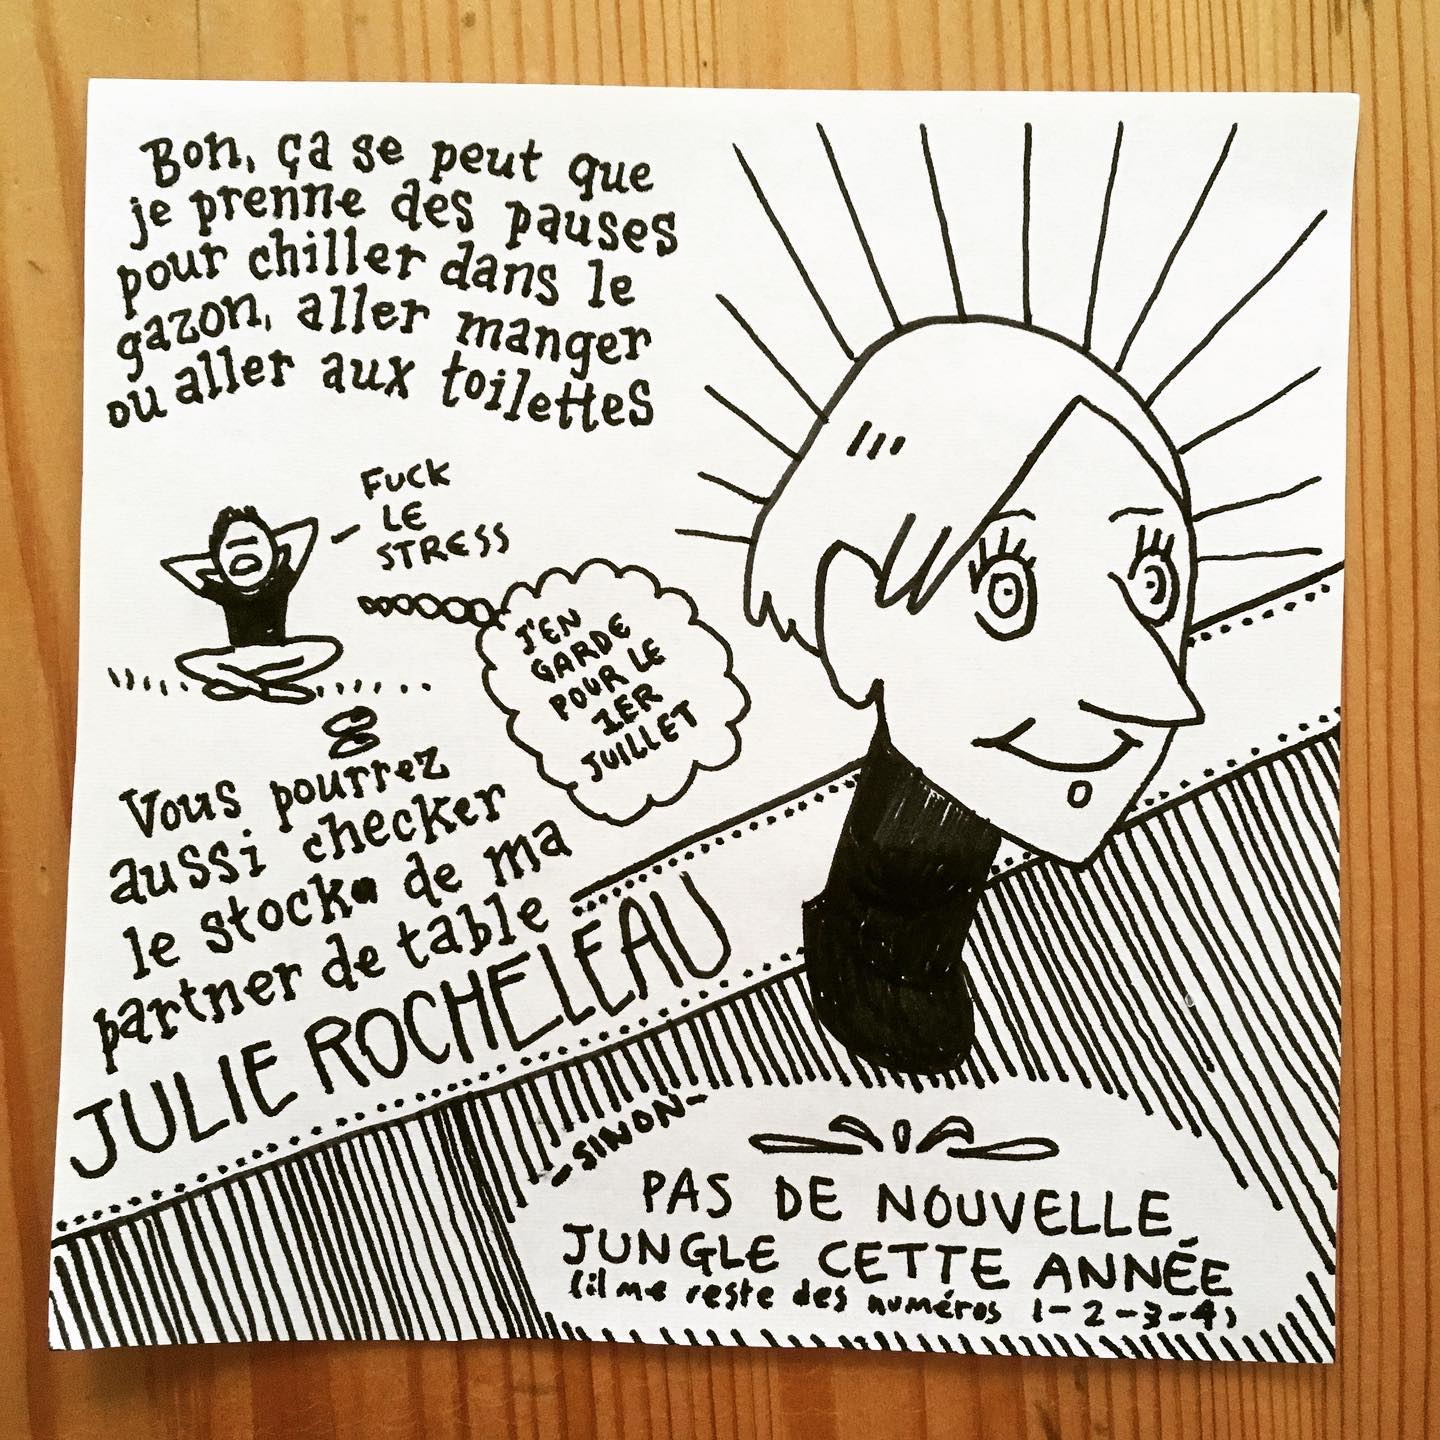 Bon, ça se peut que
je prenne des pauses
pour chiller dans le
gazon, aller manger
ou aller aux toilettes
FUCK
LE
STRESS
J'EN
GARDE
POUR LE
1ER
JUILLET
Vous pourrez
aussi checker
le stock de ma
partner de table
JULIE ROCHELEAU
-SINON-
PAS DE NOUVELLE
JUNGLE CETTE ANNÉE
(il me reste des numéros 1-2-3-4)